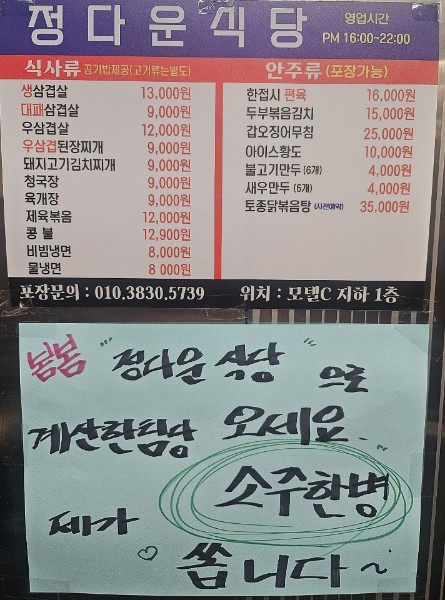 정다운식당
영업시간
PM 16:00~22:00
식사류 공기밥제공(고기류는별도)
생삼겹살 13,000원
대패삼겹살 9,000원
우삼겹살 12,000원
우삼겹된장찌개 9,000원
돼지고기김치찌개 9,000원
청국장 9,000원
육개장 9,000원
제육볶음 12,000원
콩 불 12,900원
비빔냉면 8,000원
물냉면 8 000원
안주류 (포장가능)
한접시 편육 16,000원
두부볶음김치 15,000원
갑오징어무침 25,000원
아이스황도 10,000원
불고기만두 (6개) 4,000원
새우만두 (6개) 4,000원
토종닭볶음탕 (사전예약) 35,000원
포장문의 : 010.3830.5739
위치 : 모텔C 지하 1층
봄봄 "정다운 식당" 으로
계산한팀당 오세요..
소주한병
제가
♡ 쏩니다~